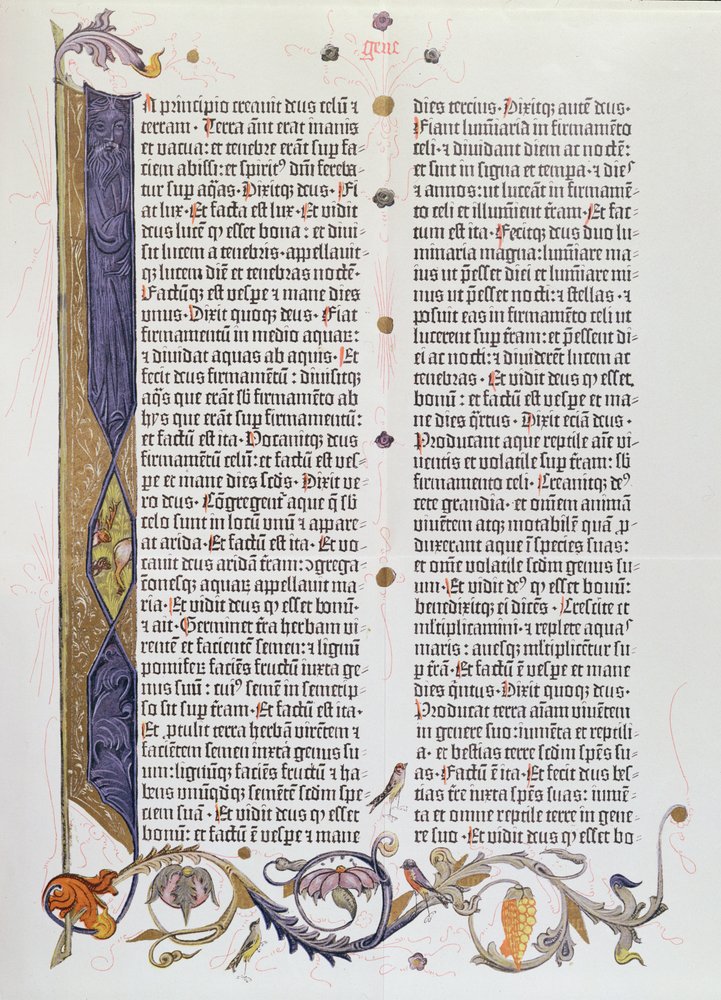 gene
In principio creavit deus celū ⁊
terram · Terra aūt erat inanis
et vacua: et tenebre erāt sup fa-
ciem abissi: et spirit⁹ dn̄i fereba-
tur sup aq̄as. Dixitq₃ deus · Fi-
at lux · Et facta est lux · Et vidit
deus lucē ꝙ esset bona: et divi-
sit lucem a tenebris · appellavit-
q₃ lucem diē et tenebras noctē ·
Factūq₃ est vespe ⁊ mane dies
unus · Dixit quoq₃ deus · Fiat
firmamentū in medio aquaꝝ:
⁊ dividat aquas ab aquis · Et
fecit deus firmamētū: divisitq₃
aq̄s que erāt sb̄ firmamēto ab
hys que erāt sup firmamentū:
et factū est ita · Vocavitq₃ deus
firmamētū celum: et factū est ves-
pe et mane dies scd̄s · Dixit ve-
ro deus · Cōgregent̄ aque q̄ sb̄
celo sunt in locū unū ⁊ appare-
at arida · Et factū est ita · Et vo-
cavit deus aridā t̄ram: ↄgrega-
cōnesq₃ aquaꝝ appellavit ma-
ria · Et vidit deus ꝙ esset bonū ·
⁊ ait · Germinet t̄ra herbam vi-
rentē et facientē semen: ⁊ lignū
pomifeꝝ faciēs fructū iuxta ge-
nus suū: cui⁹ semē in semetip-
so sit sup t̄ram · Et factū est ita ·
Et ꝓtulit terra herbā virētem ⁊
faciētem semen iuxta genus su-
um: lignūq₃ faciēs fructū ⁊ ha-
bens unūqdq₃ semētē scdm spe-
ciem suā · Et vidit deus ꝙ esset
bonū: et factū ē vespe et mane
dies tercius · Dixitq₃ autē deus ·
Fiant lumīaria in firmamēto
celi · ⁊ dividant diem ac noctē:
et sint in signa et tempa · ⁊ die⁹
⁊ annos: ut luceāt in firmamē-
to celi et illumīent t̄ram · Et fac-
tum est ita · Fecitq₃ deus duo lu-
minaria magna: lumīare ma-
ius ut p̄esset diei et lumīare mi-
nus ut p̄esset nocti: ⁊ stellas · ⁊
posuit eas in firmamēto celi ut
lucerent sup t̄ram: et p̄essent di-
ei ac nocti: ⁊ dividerēt lucem ac
tenebras · Et vidit deus ꝙ esset
bonū: et factū est vespe et ma-
ne dies q̄rtus · Dixit eciā deus ·
Producant aque reptile aīe vi-
ventis et volatile sup t̄ram: sb̄
firmamento celi · Creavitq₃ de⁹
cete grandia · et omēm animā
viventem atq₃ motabilē quā ꝓ-
duxerant aque ī species suas:
et omē volatile scdm genus su-
um · Et vidit de⁹ ꝙ esset bonū:
benedixitq₃ ei dicēs · Crescite et
ml̄tiplicamini · ⁊ replete aquas
maris: avesq₃ ml̄tiplicent̄ su-
p t̄rā · Et factū ē vespe et mane
dies q̄ntus · Dixit quoq₃ deus ·
Producat terra aīam viventem
in genere suo: iumēta et reptili-
a · et bestias terre scdm sp̄es su-
as · Factū ē ita · Et fecit deus bes-
tias t̄re iuxta sp̄es suas: iumē-
ta et omne reptile terre in gene-
re suo · Et vidit deus ꝙ esset bo-